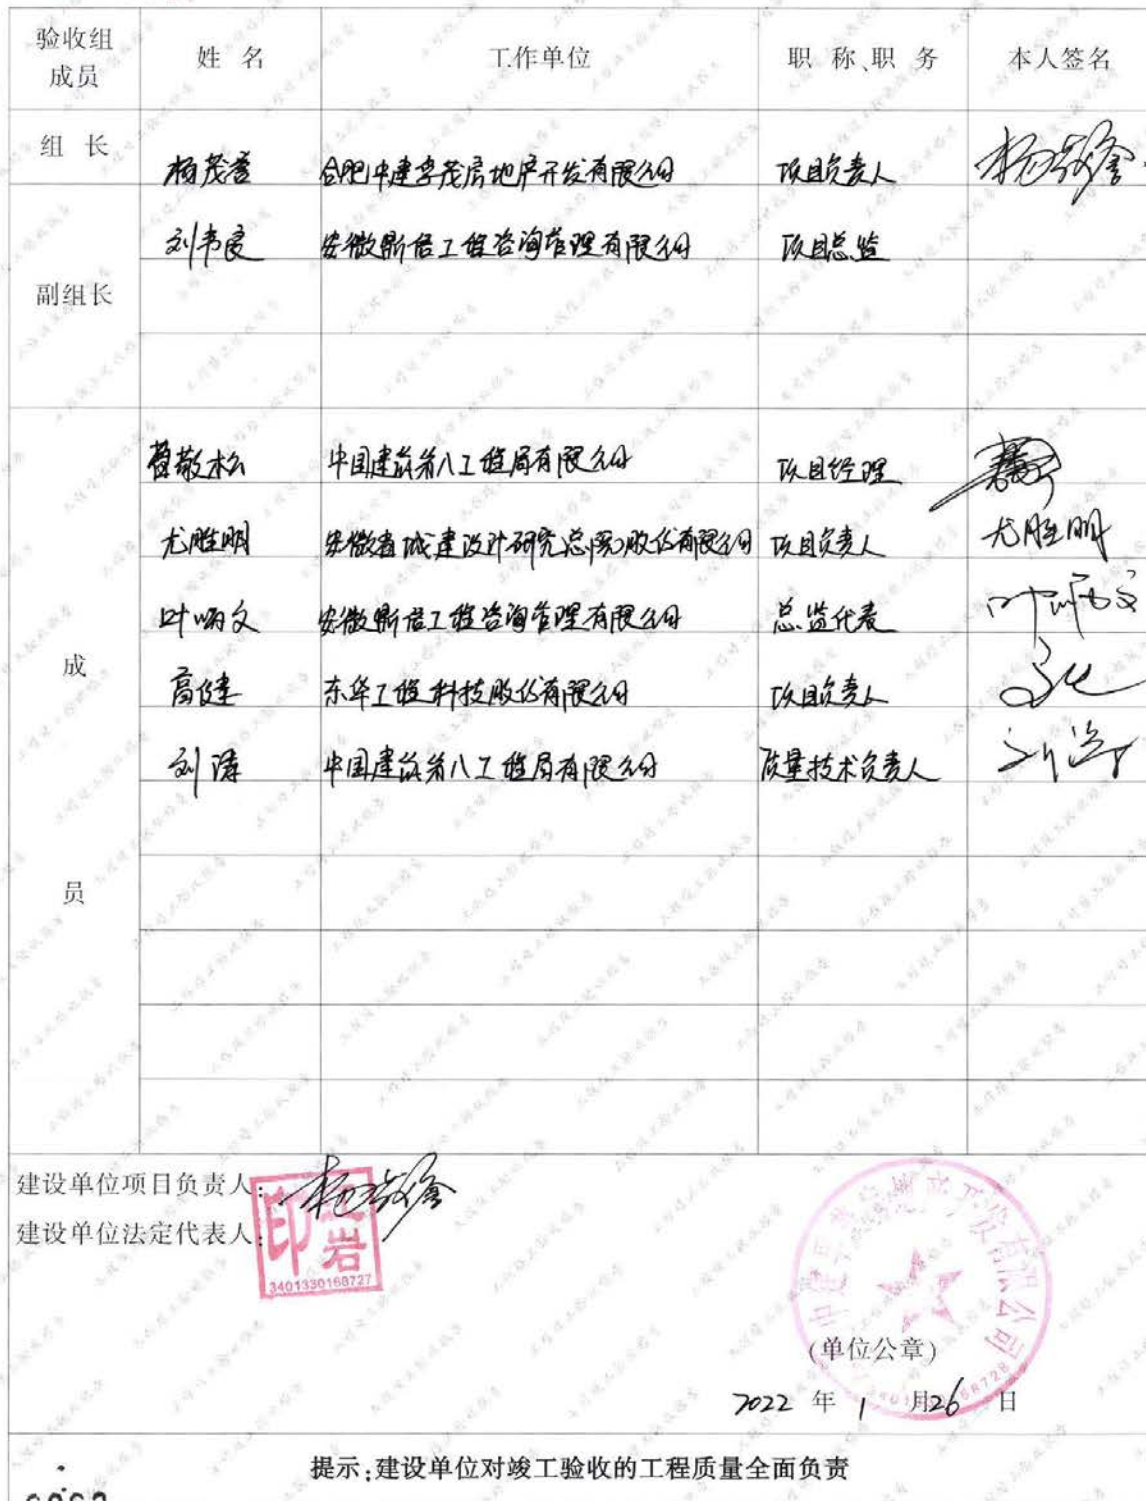 验收组成员 姓 名 工作单位 职 称、职 务 本人签名
组 长 杨茂鳌 合肥中建孚茂房地产开发有限公司 项目负责人
副组长 刘韦良 安徽鼎信工程咨询管理有限公司 项目总监
成员
敬松 中国建筑第八工程局有限公司 项目经理
尤胜明 安徽省城建设计研究总院股份有限公司 项目负责人 尤胜明
叶炳文 安徽鼎信工程咨询管理有限公司 总监代表 叶炳文
高健 东华工程科技股份有限公司 项目负责人
刘涛 中国建筑第八工程局有限公司 质量技术负责人 刘涛
建设单位项目负责人:
建设单位法定代表人:
印 岩
3401330168727
房地产开发有限公司
(单位公章)
2022 年 1 月 26 日
提示:建设单位对竣工验收的工程质量全面负责